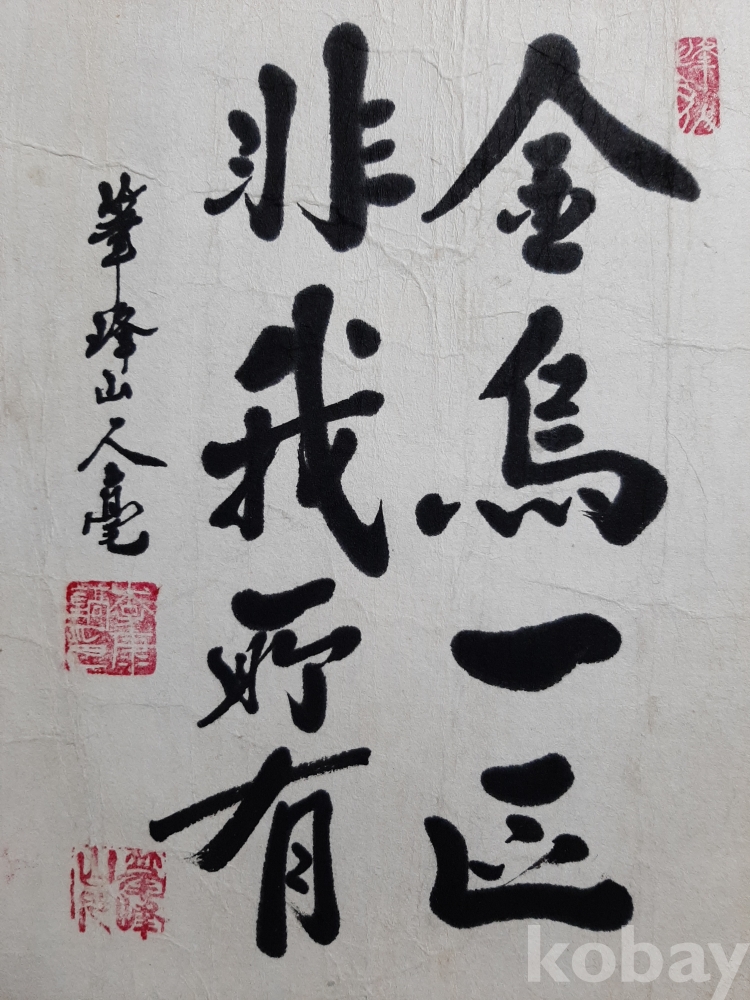 金烏一匹
非我所有
筆峰山人毫